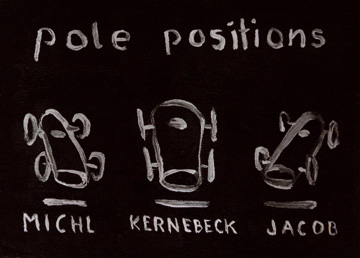 pole positions
MICHL KERNEBECK JACOB